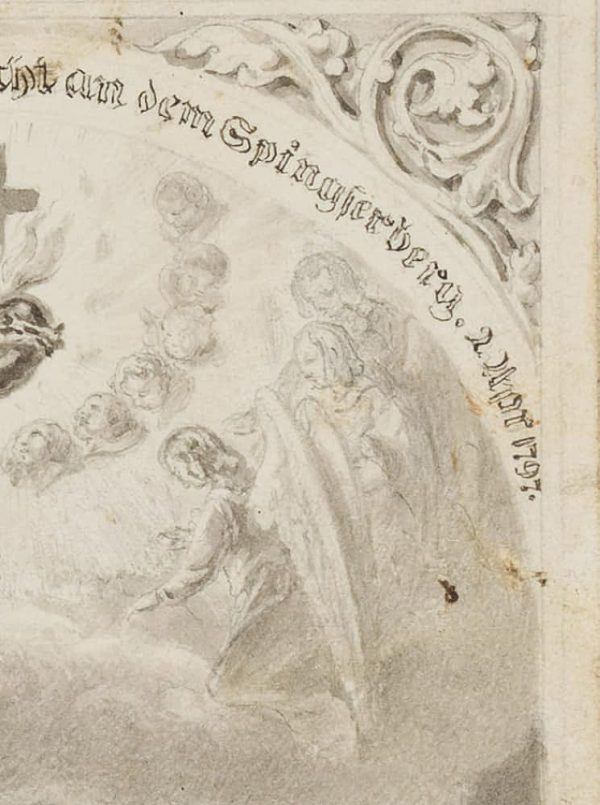 cht an dem Spingserberg. 2. Apr 1797.